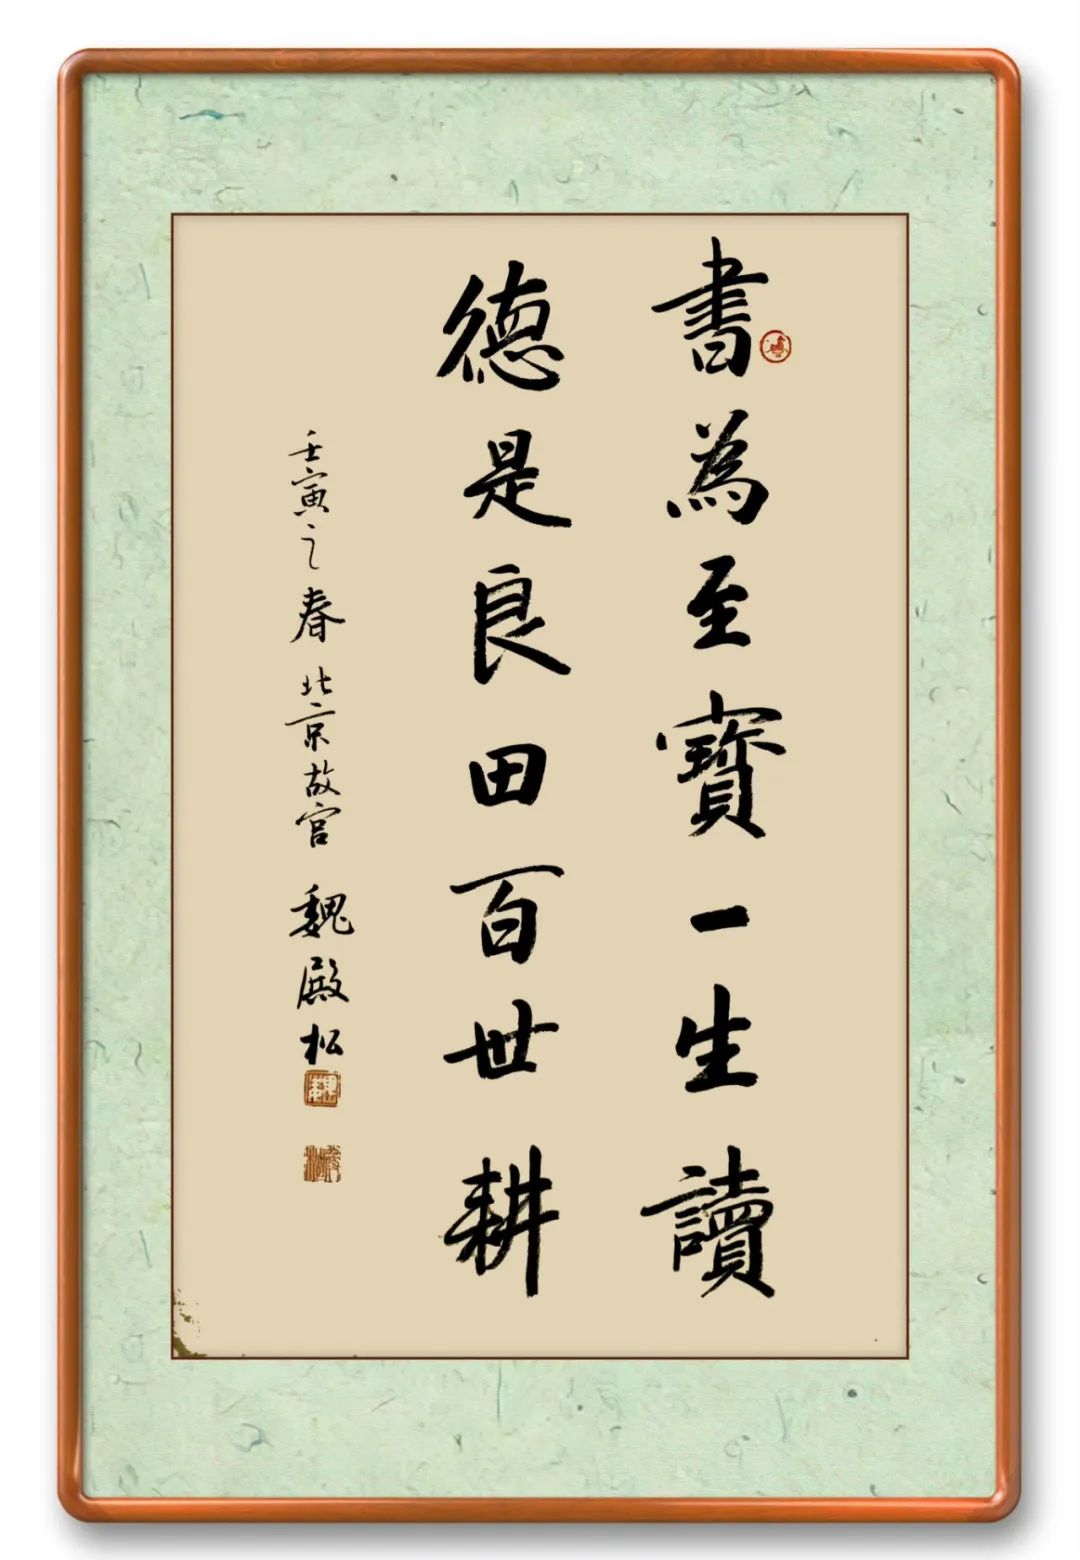 書為至寶一生讀
德是良田百世耕
壬寅之春北京故宫魏殿松